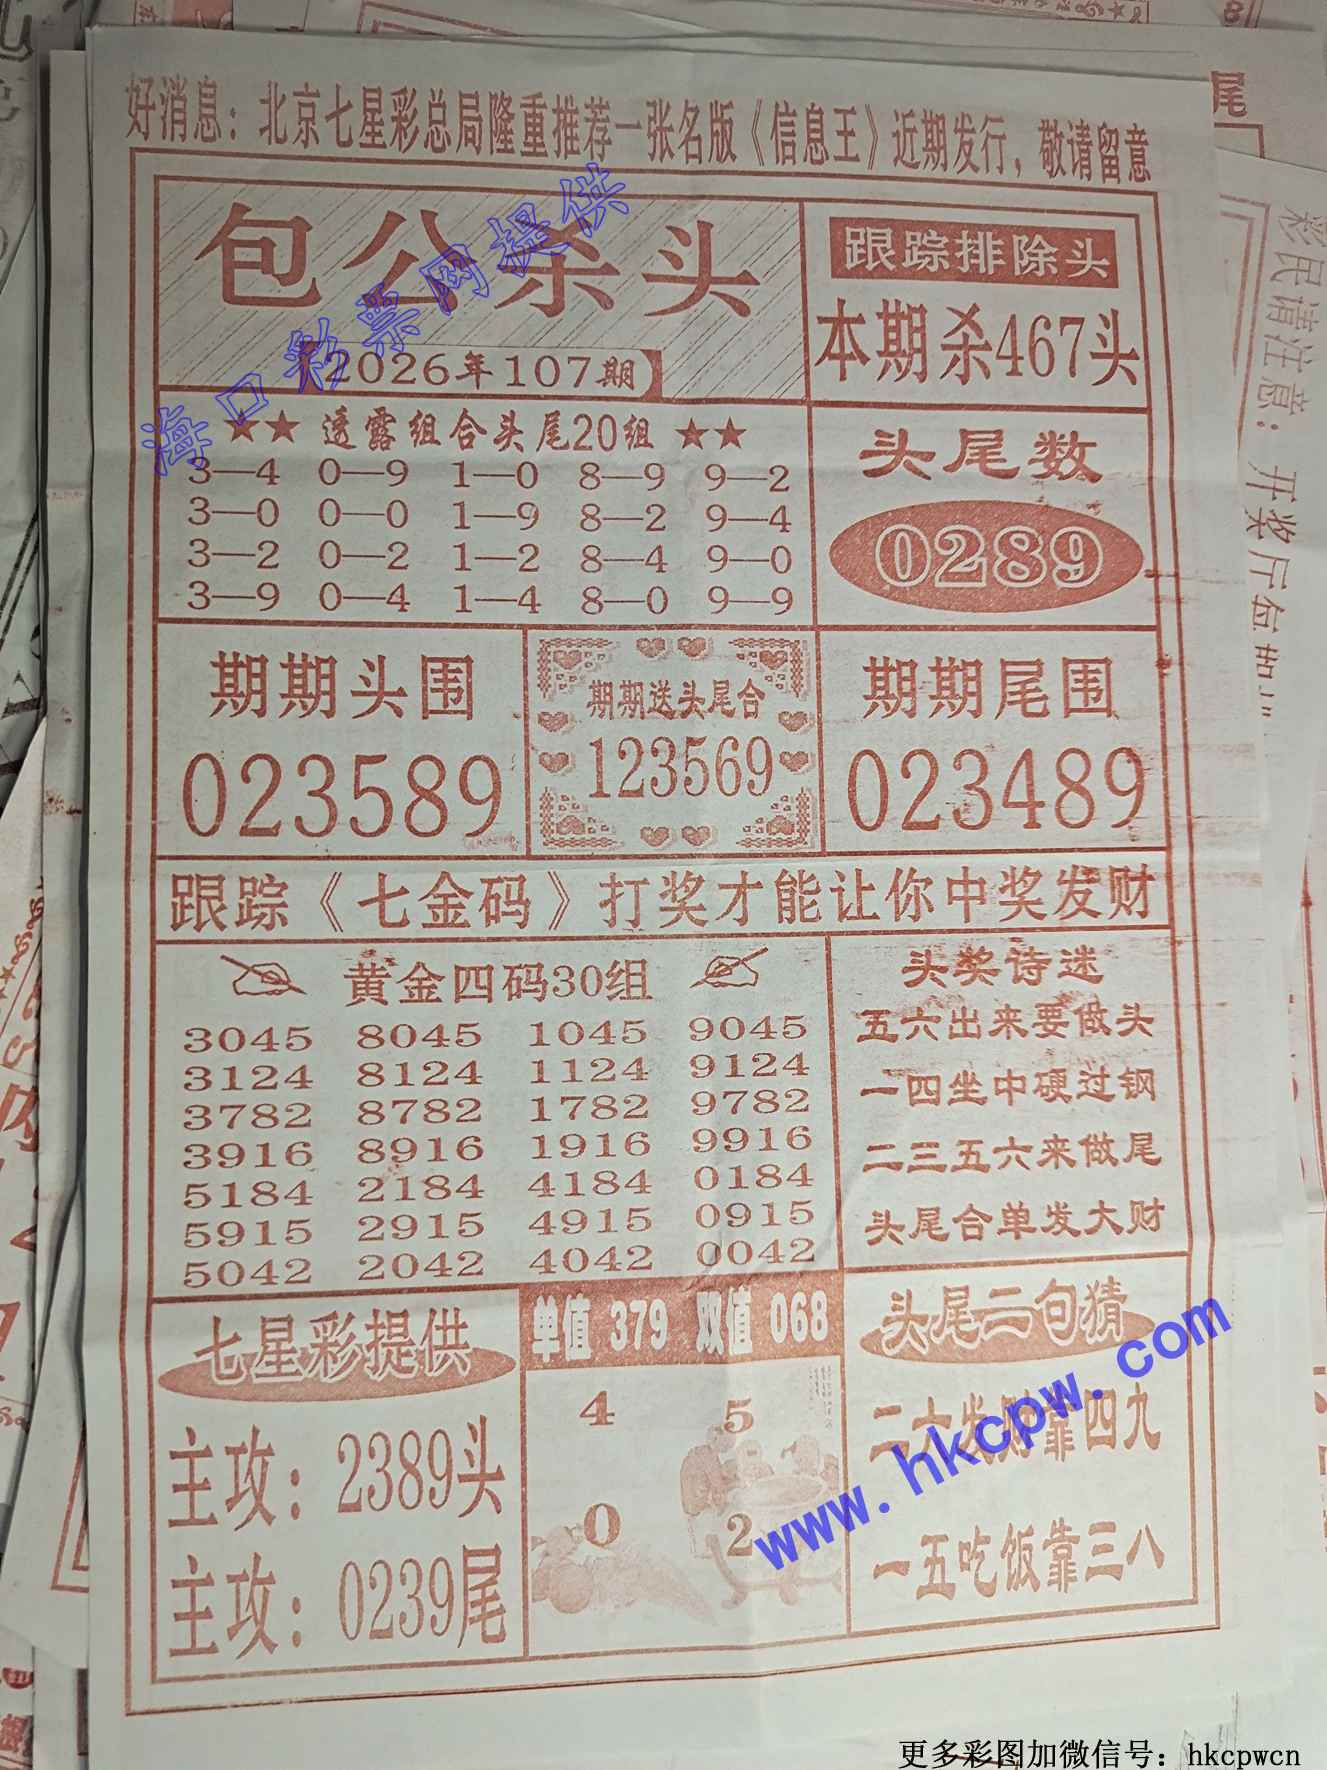 好消息：北京七星彩总局隆重推荐一张名版《信息王》近期发行，敬请留意
包公杀头
2026年107期
跟踪排除头
本期杀467头
★★ 透露组合头尾20组 ★★
3—4 0—9 1—0 8—9 9—2
3—0 0—0 1—9 8—2 9—4
3—2 0—2 1—2 8—4 9—0
3—9 0—4 1—4 8—0 9—9
头尾数
0289
期期头围
023589
期期送头尾合
123569
期期尾围
023489
跟踪《七金码》打奖才能让你中奖发财
黄金四码30组
3045 8045 1045 9045
3124 8124 1124 9124
3782 8782 1782 9782
3916 8916 1916 9916
5184 2184 4184 0184
5915 2915 4915 0915
5042 2042 4042 0042
头奖诗迷
五六出来要做头
一四坐中硬过钢
二三五六来做尾
头尾合单发大财
七星彩提供
主攻：2389头
主攻：0239尾
单值 379 双值 068
4 5
0 2
头尾二句猜
二六发财靠四九
一五吃饭靠三八
海口彩票网提供
www.hkcpw.com
彩民请注意：开奖厅在
尾
更多彩图加微信号：hkcpwcn